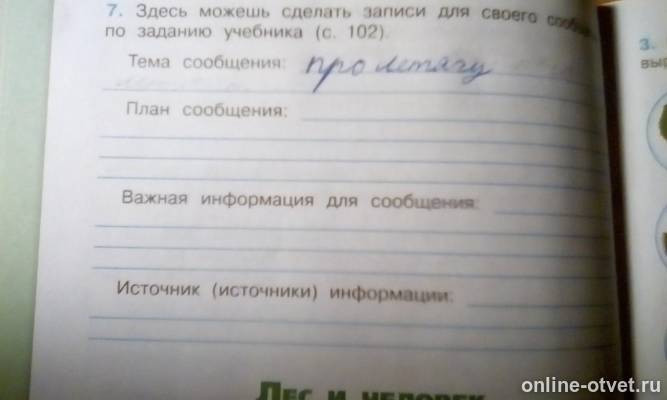 7. Здесь можешь сделать записи для своего
по заданию учебника (с. 102).
3.
Тема сообщения: про летягу
План сообщения:
Важная информация для сообщения:
Источник (источники) информации:
Лес и человек
online-otvet.ru